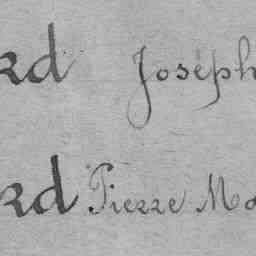 rd Joseph
rd Pierre Ma